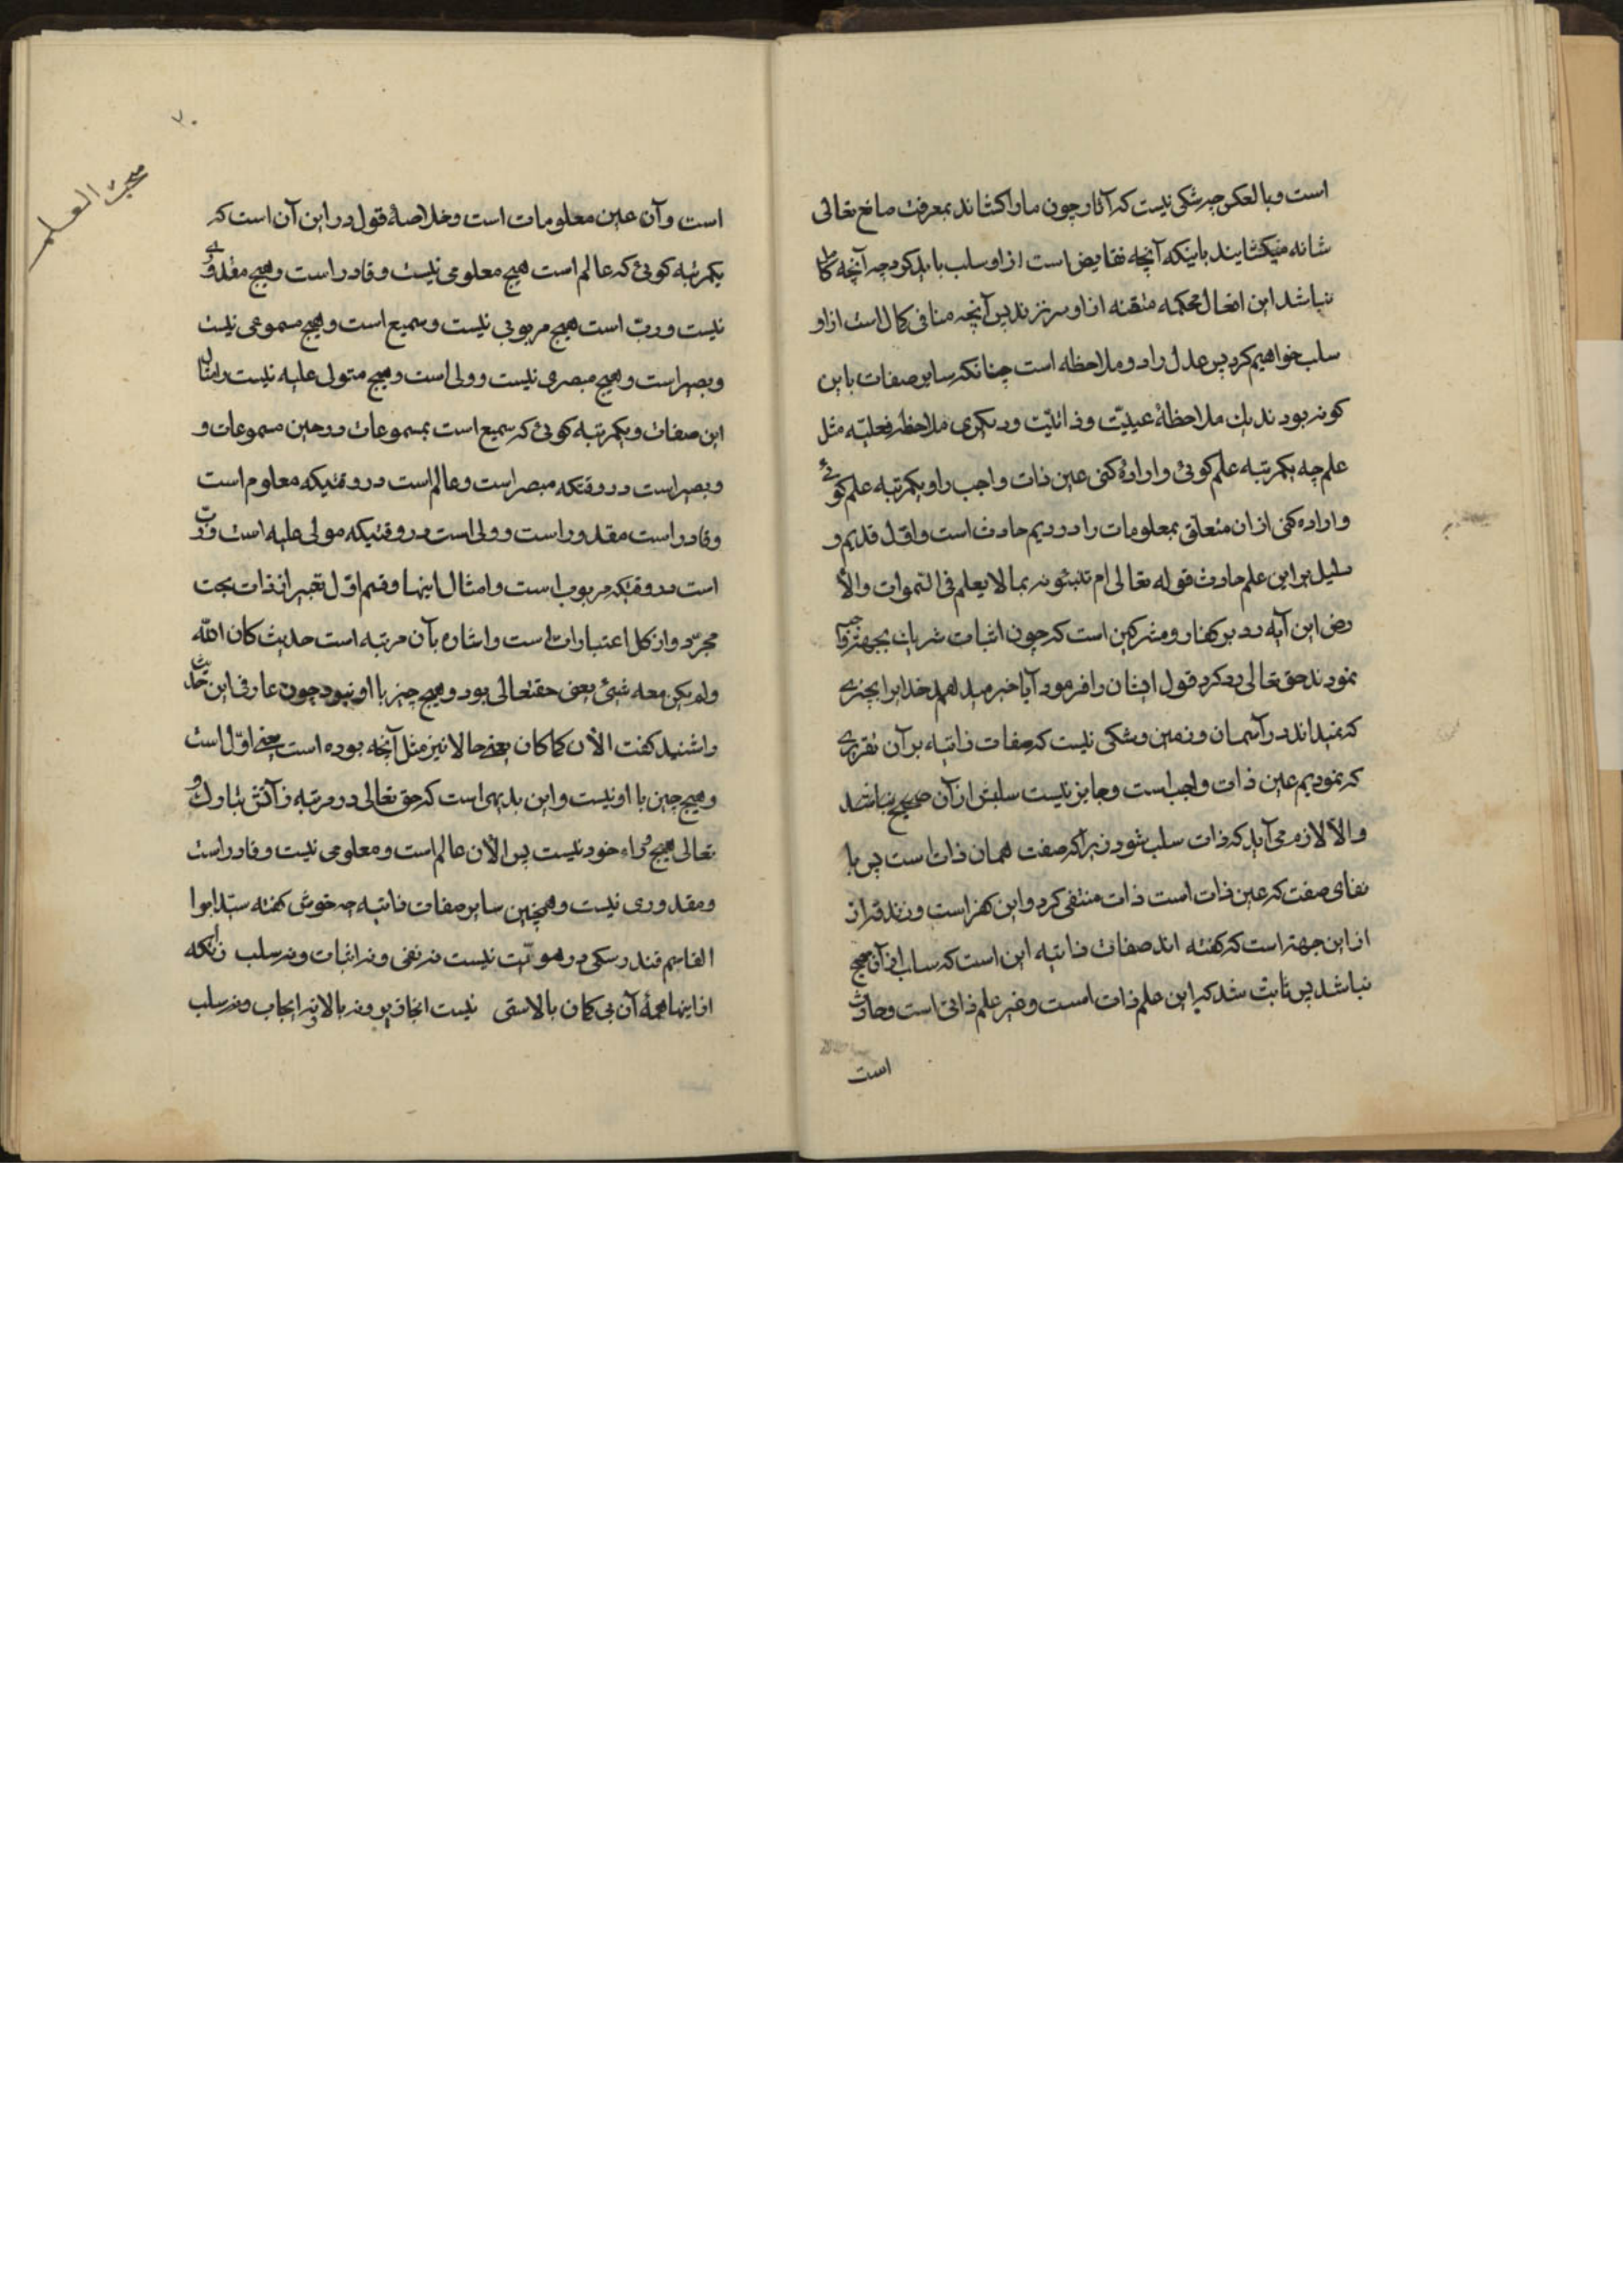 است و بالعکس چه شکی نیست که آثار چون ما را کشاند بمعرفت صانع تعالی
شانه میکشایند باینکه آنچه نقایض است از او سلب باید کرد چه آنچه کامل
نباشد این افعال محکمه متقنه از او سر نزند پس آنچه منافی کمال است از او
سلب خواهیم کرد پس عدل را دو ملاحظه است چنانکه سایر صفات باین
کونه بودند یک ملاحظهٔ عینیّت و ذاتیّت و دیکری ملاحظهٔ فعلیّه مثل
علم چه یکمرتبه علم کوئی و ارادهٔ کنی عین ذات واجب را و یکمرتبه علم کوئی
و اراده کنی از ان متعلّق بمعلومات را و دویم حادث است و اوّل قدیم و
دلیل بر این علم حادث قوله تعالی ام تنبئونه بما لا یعلم فی السّموات والأ
رض این آیه رد بر کفّار و مشرکین است که چون اثبات شریک بجهة واجب
نمودند حق تعالی رد کرد قول ایشان را فرمود آیا خبر میدهید خدا را بچیزی
که نمیداند در آسمان و زمین و شکی نیست که صفات ذاتیّه بر آن تقریری
که نمودیم عین ذات واجب است و جایز نیست سلبش از آن صحیح نباشد
والّا لازم می آید که ذات سلب شود زیرا که صفت همان ذات است پس با
نفای صفت که عین ذات است ذات منتفی کرد و این کفر است و زندقه از
از این جهة است که کفته اند صفات ذاتیه این است که سلب از آن صحیح
نباشد پس ثابت شد که این علم ذات است و غیر علم ذاتی است و حادث
است
۷۰
مبحث العلم
است و آن عین معلومات است و خلاصهٔ قول در این آن است که
یکمرتبه کوئی که عالم است هیچ معلومی نیست و قادر است و هیچ مقدوری
نیست و ربّ است هیچ مربوبی نیست و سمیع است و هیچ مسموعی نیست
و بصیر است و هیچ مبصری نیست و ولی است و هیچ متولی علیه نیست و امثال
این صفات و یکمرتبه کوئی که سمیع است بمسموعات در حین مسموعات و
و بصیر است در وقتیکه مبصر است و عالم است در وقتیکه معلوم است
و قادر است مقدور است و ولی است در وقتیکه مولی علیه است و ربّ
است در وقتیکه مربوب است و امثال اینها و قسم اوّل تعبیر از ذات بحت
مجرّد و از کل اعتبارات است و اشاره بآن مرتبه است حدیث کان اللّه
ولم یکن معه شیئ یعنی حقتعالی بود و هیچ چیز با او نبود چون عارف این حدیث
را شنید کفت الآن کما کان یعنی حالا نیز مثل آنچه بوده است یعنی اوّل است
و هیچ چیز با او نیست و این بدیهی است که حق تعالی در مرتبه ذاتش تبارک و
تعالی هیچ وراء خود نیست پس الآن عالم است و معلومی نیست و قادر است
و مقدوری نیست و همچنین سایر صفات ذاتیه چه خوش کفته سیّد ابوا
القاسم فندرسکی در هویّت نیست نه نفی و نه اثبات و نه سلب زانکه
از اینها همهٔ آن بی کمان بالاستی نیست انجا وجود و نه بالا نه ایجاب و نه سلب